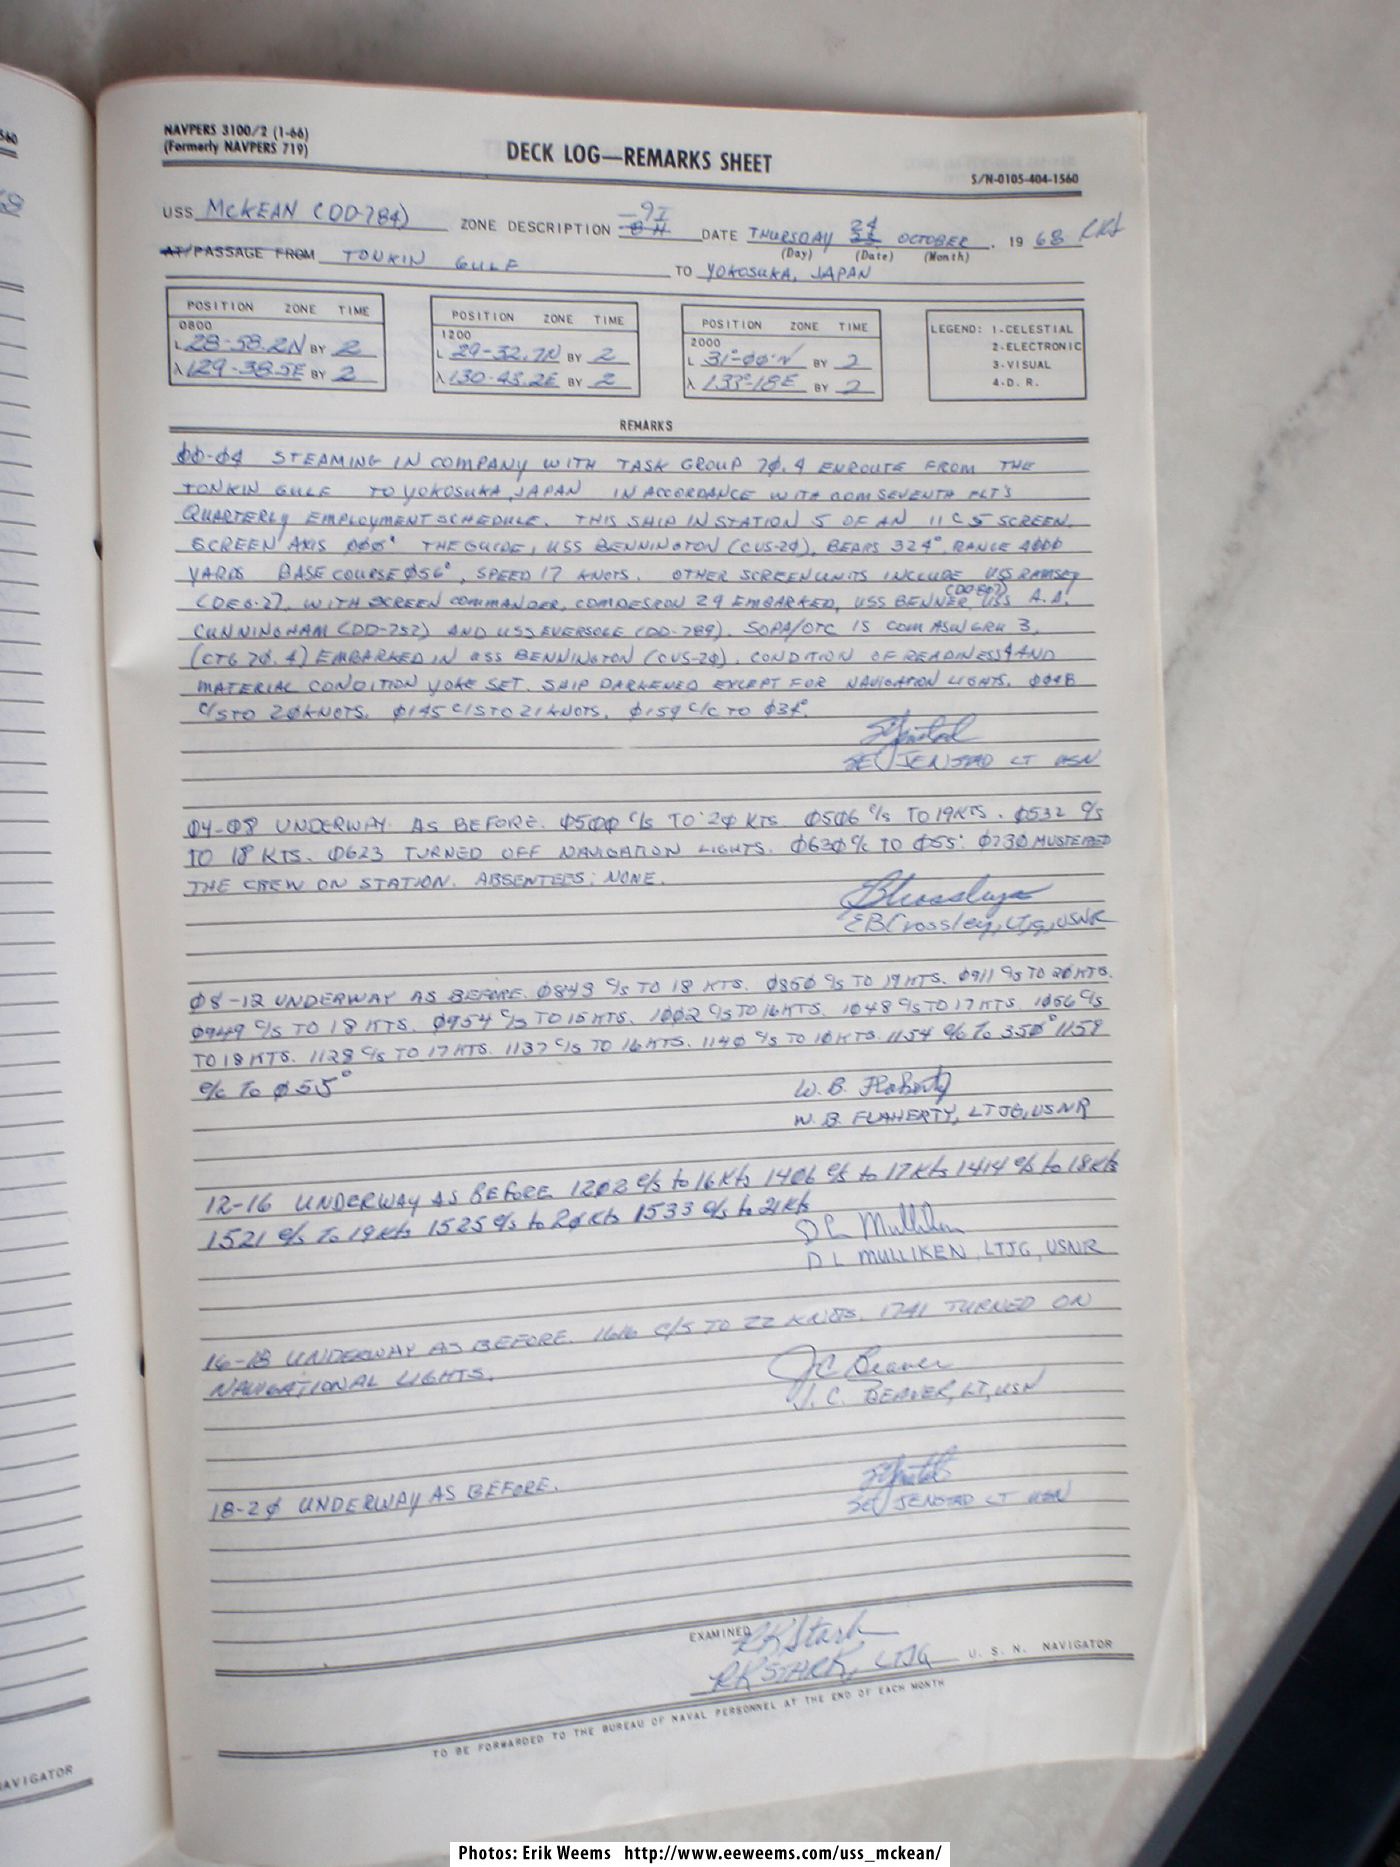 560
68
NAVPERS 3100/2 (1-66)
(Formerly NAVPERS 719)
DECK LOG—REMARKS SHEET
S/N-0105-404-1560
USS McKEAN (DD-784) ZONE DESCRIPTION -9I -8H DATE THURSDAY 24 OCTOBER, 1968 RKS
(Day) (Date) (Month)
AT/PASSAGE FROM TONKIN GULF TO YOKOSUKA, JAPAN
POSITION ZONE TIME
0800
L 28-58.2N BY 2
λ 129-38.5E BY 2
POSITION ZONE TIME
1200
L 29-32.7N BY 2
λ 130-43.2E BY 2
POSITION ZONE TIME
2000
L 31°-00'N BY 2
λ 133°-18E BY 2
LEGEND: 1-CELESTIAL
2-ELECTRONIC
3-VISUAL
4-D. R.
REMARKS
00-04 STEAMING IN COMPANY WITH TASK GROUP 70.4 ENROUTE FROM THE
TONKIN GULF TO YOKOSUKA, JAPAN IN ACCORDANCE WITH COMSEVENTH FLT'S
QUARTERLY EMPLOYMENT SCHEDULE. THIS SHIP IN STATION 5 OF AN 11 C 5 SCREEN.
SCREEN AXIS 000° THE GUIDE, USS BENNINGTON (CVS-20), BEARS 324°, RANGE 4000
YARDS BASE COURSE 056°, SPEED 17 KNOTS. OTHER SCREEN UNITS INCLUDE USS RAMSEY
(DEG-2), WITH SCREEN COMMANDER, COMDESRON 29 EMBARKED, USS BENNER (DD-807) USS A.A.
CUNNINGHAM (DD-752) AND USS EVERSOLE (DD-789). SOPA/OTC IS COMASWGRU 3,
(CTG 70.4) EMBARKED IN USS BENNINGTON (CVS-20). CONDITION OF READINESS 4 AND
MATERIAL CONDITION YOKE SET. SHIP DARKENED EXCEPT FOR NAVIGATION LIGHTS. 0048
C/S TO 20 KNOTS. 0145 C/S TO 21 KNOTS. 0159 C/C TO 034°.
SEJenstad
SEJ JENSTAD LT USN
04-08 UNDERWAY AS BEFORE. 0500 C/S TO 20 KTS. 0506 C/S TO 19KTS. 0532 C/S
TO 18 KTS. 0623 TURNED OFF NAVIGATION LIGHTS. 0630 C/C TO 055°. 0730 MUSTERED
THE CREW ON STATION. ABSENTEES: NONE.
EBCrossley
EBCrossley, LTjg, USNR
08-12 UNDERWAY AS BEFORE. 0843 C/S TO 18 KTS. 0850 C/S TO 19 KTS. 0911 C/S TO 20 KTS.
0949 C/S TO 18 KTS. 0954 C/S TO 15 KTS. 1002 C/S TO 16 KTS. 1048 C/S TO 17 KTS. 1056 C/S
TO 18 KTS. 1128 C/S TO 17 KTS. 1137 C/S TO 16 KTS. 1140 C/S TO 10 KTS. 1154 C/C TO 350° 1159
C/C TO 055°
W. B. Flaherty
W. B. FLAHERTY, LTJG, USNR
12-16 UNDERWAY AS BEFORE 1202 C/S to 16 Kts 1406 C/S to 17 Kts 1414 C/S to 18 Kts
1521 C/S To 19 Kts 1525 C/S to 20 Kts 1533 C/S to 21 Kts
D L Mulliken
D L MULLIKEN, LTJG, USNR
16-18 UNDERWAY AS BEFORE. 1616 C/S TO 22 KNOTS. 1741 TURNED ON
NAVIGATIONAL LIGHTS.
JC Beaver
J. C. BEAVER, LT, USN
18-20 UNDERWAY AS BEFORE.
SEJenstad
SEJ JENSTAD LT USN
EXAMINED
RKStark
RKSTARK, LTJG U. S. N. NAVIGATOR
TO BE FORWARDED TO THE BUREAU OF NAVAL PERSONNEL AT THE END OF EACH MONTH
NAVIGATOR
Photos: Erik Weems http://www.eeweems.com/uss_mckean/